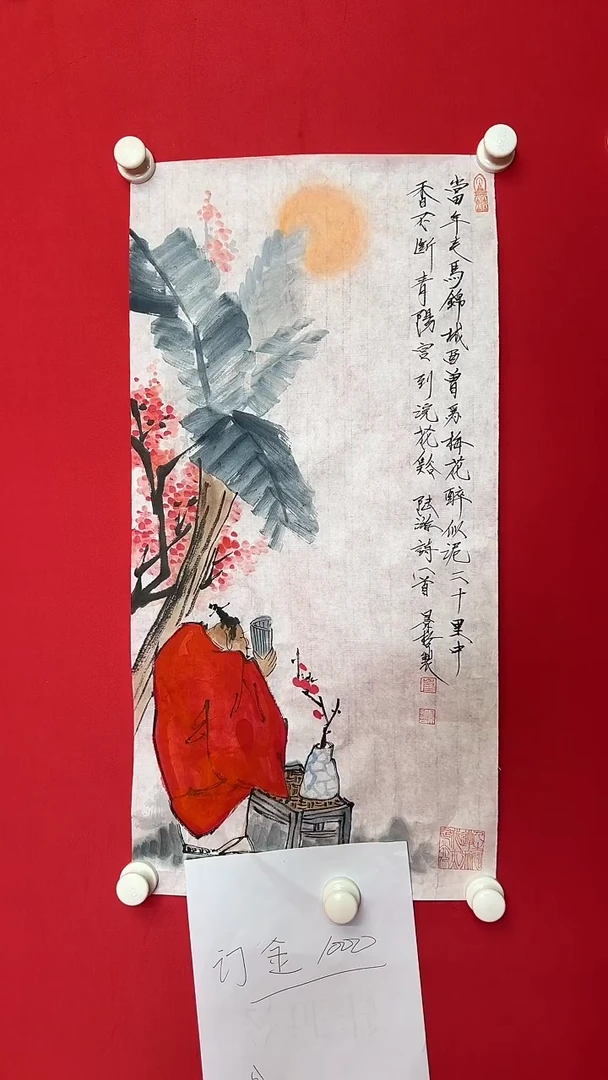 當年走馬錦城西曾為梅花醉似泥二十里中
香不斷青陽宮到浣花谿 陸游詩一首
订金 1000